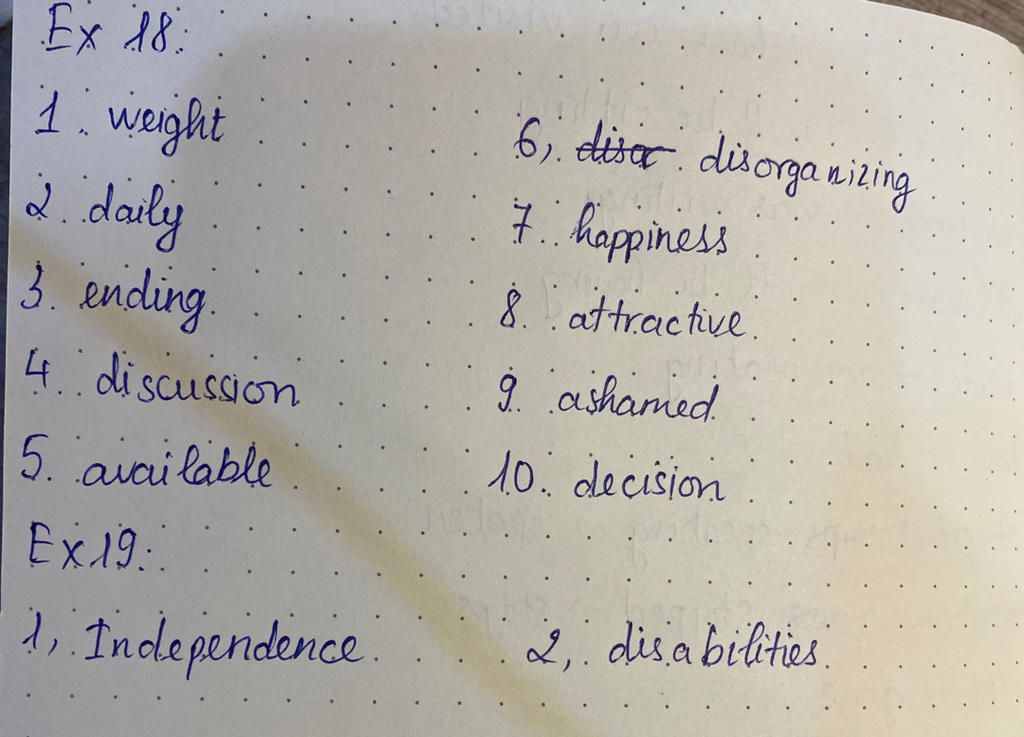 Ex 18:
1. weight
2. daily
3. ending
4. discussion
5. available
6, disor disorganizing
7. happiness
8. attractive
9. ashamed
10. decision
Ex 19:
1, Independence
2, disabilities